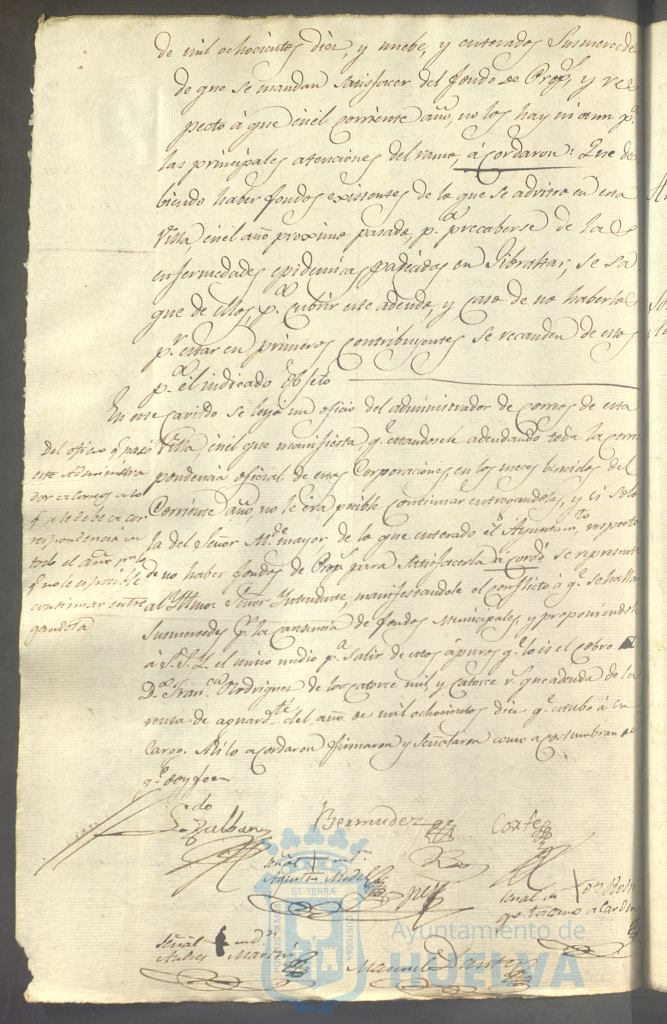 de mil ochocientos diez, y nuebe, y enterados Susmercedes
de que se mandan satisfacer del fondo de Prop.s, y res
pecto á que en el corriente año, no los hay ni aun p.a
las principales atenciones del ramo, acordaron: Que de
biendo haber fondos existentes de lo que se advitro en esta
Villa en el año proximo pasado, p.a precaberse de las
enfermedades epidemicas padecidas en Gibraltar, se sa
que de ellos, p.a cubrir este adeudo, y caso de no haberlos
p.r estar en primeros contribuyentes se recauden de estos
p.a el indicado Objeto
En este Cavildo se leyó un oficio del administrador de correos de esta
Villa, en el que manifiesta q.e estandosele adeudando toda la corres
pondencia oficial de estas Corporaciones, en los meses bencidos del
Corriente año, no le era posible continuar entregandola, y si solo
la del Señor Al.de mayor, de lo que enterado el Ayuntam.to, respecto
de no haber fondos de Prop.s para satisfacerla acordó se represente
al Yltmo. Señor Yntendente, manifestandole el conflicto á q.e se hallan
Susmercedes p.r la carencia de fondos Municipales, y proponiendole
á S.S.Y. el unico medio p.a salir de estos ápuros q.e lo es el cobro
D.n Fran.co Rodriguez de los catorce mil, y catorce r.s que adeuda de la
renta de aguard.te del año de mil ochocientos diez q.e estubo á su
Cargo. Asi lo acordaron firmaron y señalaron como acostumbran de
q.e doy fee
Del oficio q.e pasó
este Administra
dor de correos a lo
q.e se le debe de cor
respondencia en
todo el año p.r
q.e no le es posible
continuar entre
gandola
L.do
Bermudez
Cortes
Señal + de
Agustin
Señal en
Señal + de
Andres Martin
Manuel Dantes
PORTUS MARIS
ET TERRÆ
CUSTODIA
Ayuntamiento de
HUELVA